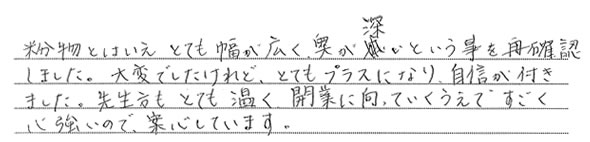 粉物とはいえ とても 幅が広く、奥が深いという事を再確認
しました。大変でしたけれど、とてもプラスになり、自信が付き
ました。先生方も とても 温く 開業に向っていくうえで すごく
心強いので、案心しています。